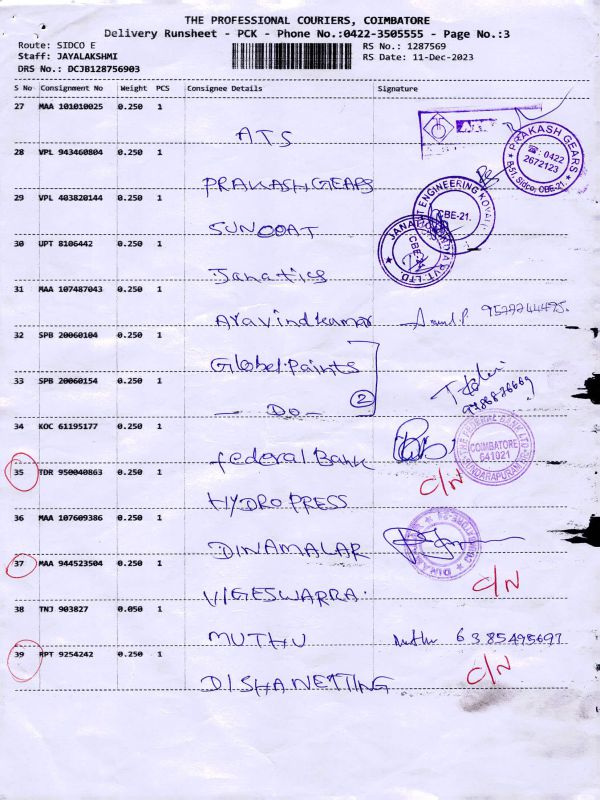 THE PROFESSIONAL COURIERS, COIMBATORE
Delivery Runsheet - PCK - Phone No.:0422-3505555 - Page No.:3
Route: SIDCO E
RS No.: 1287569
Staff: JAYALAKSHMI
RS Date: 11-Dec-2023
DRS No.: DCJB128756903
S No Consignment No Weight PCS Consignee Details Signature
27 MAA 101010025 0.250 1
ATS
28 VPL 943460804 0.250 1
PRAKASH GEARS
PRAKASH GEARS
☎: 0422
2672123
B-51, Sidco, CBE-21.
29 VPL 403820144 0.250 1
SUNCOAT
ENGINEERING
CBE-21.
30 UPT 8106442 0.250 1
Janatics
JANATICS INDIA PVT LTD
31 MAA 107487043 0.250 1
Aravindkumar
32 SPB 20060104 0.250 1
Global Paints
33 SPB 20060154 0.250 1
— Do —
2
34 KOC 61195177 0.250 1
federal Bank
THE FEDERAL BANK LTD
COIMBATORE
641021
SUNDARAPURAM
35 TDR 950040863 0.250 1
C/N
HYDROPRESS
36 MAA 107609386 0.250 1
DINAMALAR
37 MAA 944523504 0.250 1
C/N
VIGESWARRA
38 TNJ 903827 0.050 1
MUTHU
Muthu 6385495697
39 HPT 9254242 0.250 1
C/N
DISHA NETTING